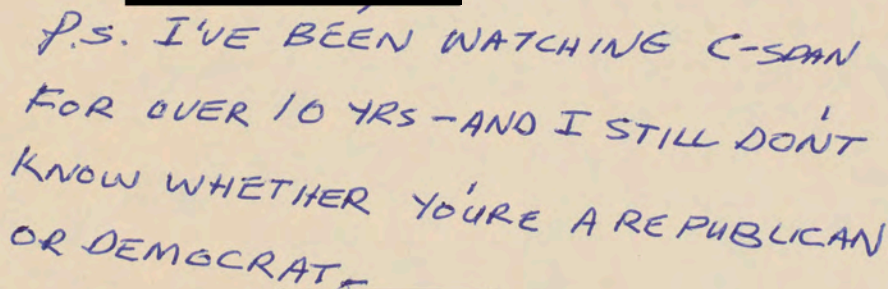 P.S. I'VE BEEN WATCHING C-SPAN
FOR OVER 10 YRS - AND I STILL DON'T
KNOW WHETHER YOU'RE A REPUBLICAN
OR DEMOCRAT-